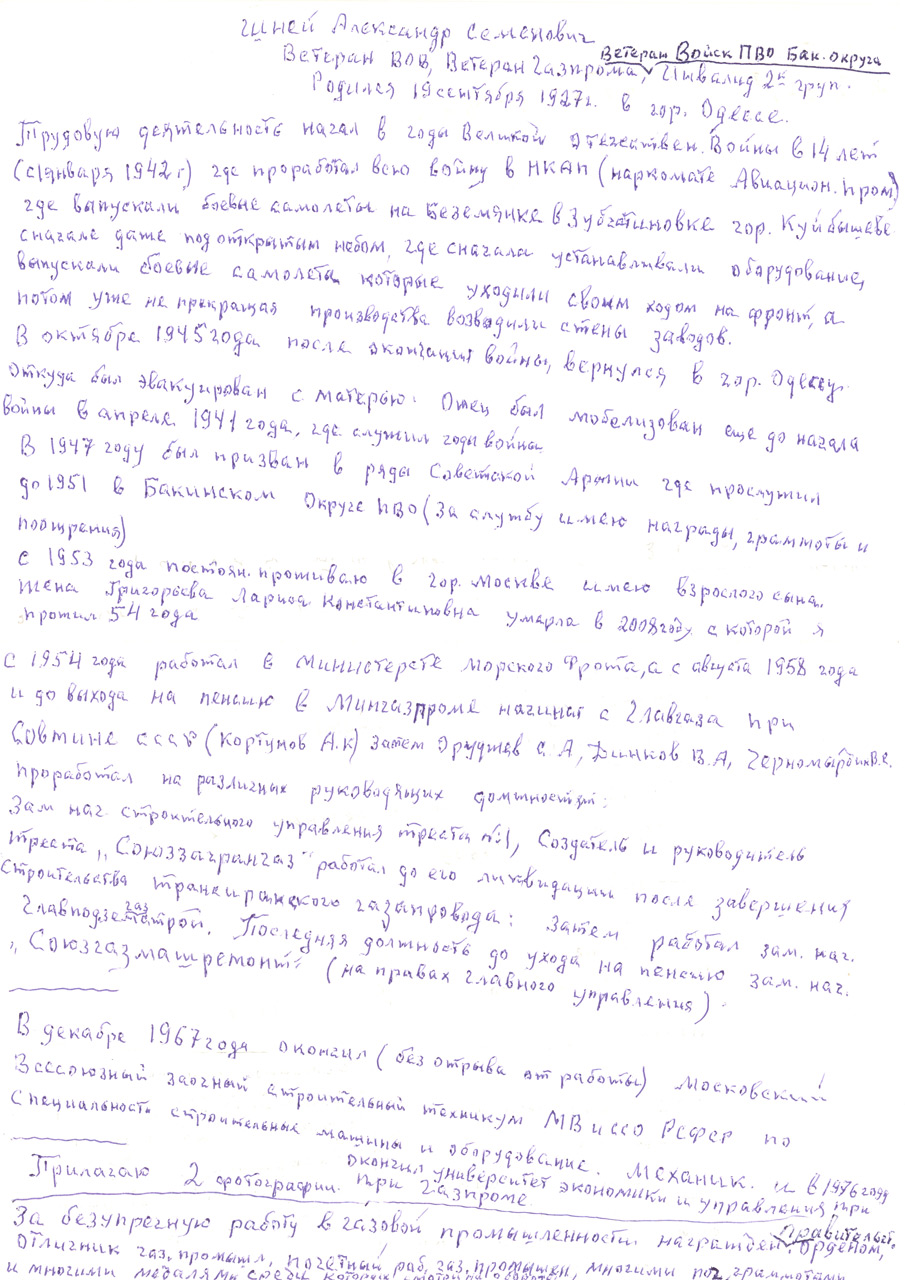 Шней Александр Семенович
Ветеран Войск ПВО Бак. округа
Ветеран ВОВ, Ветеран Газпрома, Инвалид 2й груп.
Родился 19 сентября 1927г. в гор. Одессе.
Трудовую деятельность начал в годы Великой Отечествен. Войны в 14 лет
(с 1 января 1942г) где проработал всю войну в НКАП (наркомате Авиацион. пром)
где выпускали боевые самолеты на Беземянке в Зубчатиновке гор. Куйбышеве
сначале даже под открытым небом, где сначала устанавливали оборудование,
выпускали боевые самолета которые уходили своим ходом на фронт, а
потом уже не прекращая производства возводили стены заводов.
В октябре 1945 года после окончания войны, вернулся в гор. Одессу.
Откуда был эвакуирован с матерью. Отец был мобелизован еще до начала
войны в апреле 1941 года, где служил годы война
В 1947 году был призван в ряды Советской Армии где прослужил
до 1951 в Бакинском Округе ПВО (За службу имею награды, граммоты и
поощрения)
с 1953 года постоян. проживаю в гор. Москве имею взрослого сына.
жена Григорьева Лариса Константиновна умарла в 2008 году с которой я
прожил 54 года
С 1954 года работал в министерстве морского Фрота, а с августа 1958 года
и до выхода на пенсию в Мингазпроме начиная с Главгаза при
Совмине СССР (Кортунов А.К) затем Оруджев С.А, Динков В.А, Черномырдин В.С.
проработал на различных руководящих должностях:
Зам нач. строительного управления треста №1, Создатель и руководитель
треста „Союззагрангаз" работал до его ликвидации после завершения
строительства трансиранского газапровода: Затем работал зам. нач.
Главподземгазстрой. Последняя должность до ухода на пенсию зам. нач.
„Союзгазмашремонт" (на правах главного управления).
В декабре 1967 года окончил (без отрыва от работы) Московский
Всесоюзный заочный строительный техникум МВ и ССО РСФСР по
Специальность строительные машины и оборудование. Механик. и в 1976 году
окончил университет экономики и управления при
Прилагаю 2 фотографии. при Газпроме
За безупречную работу в газовой промышленности награжден Правительст. Орденом,
Отличник газ. промышл, почетный раб. газ. промышлен, многими поч. граммотами
и многими медалями среди которых